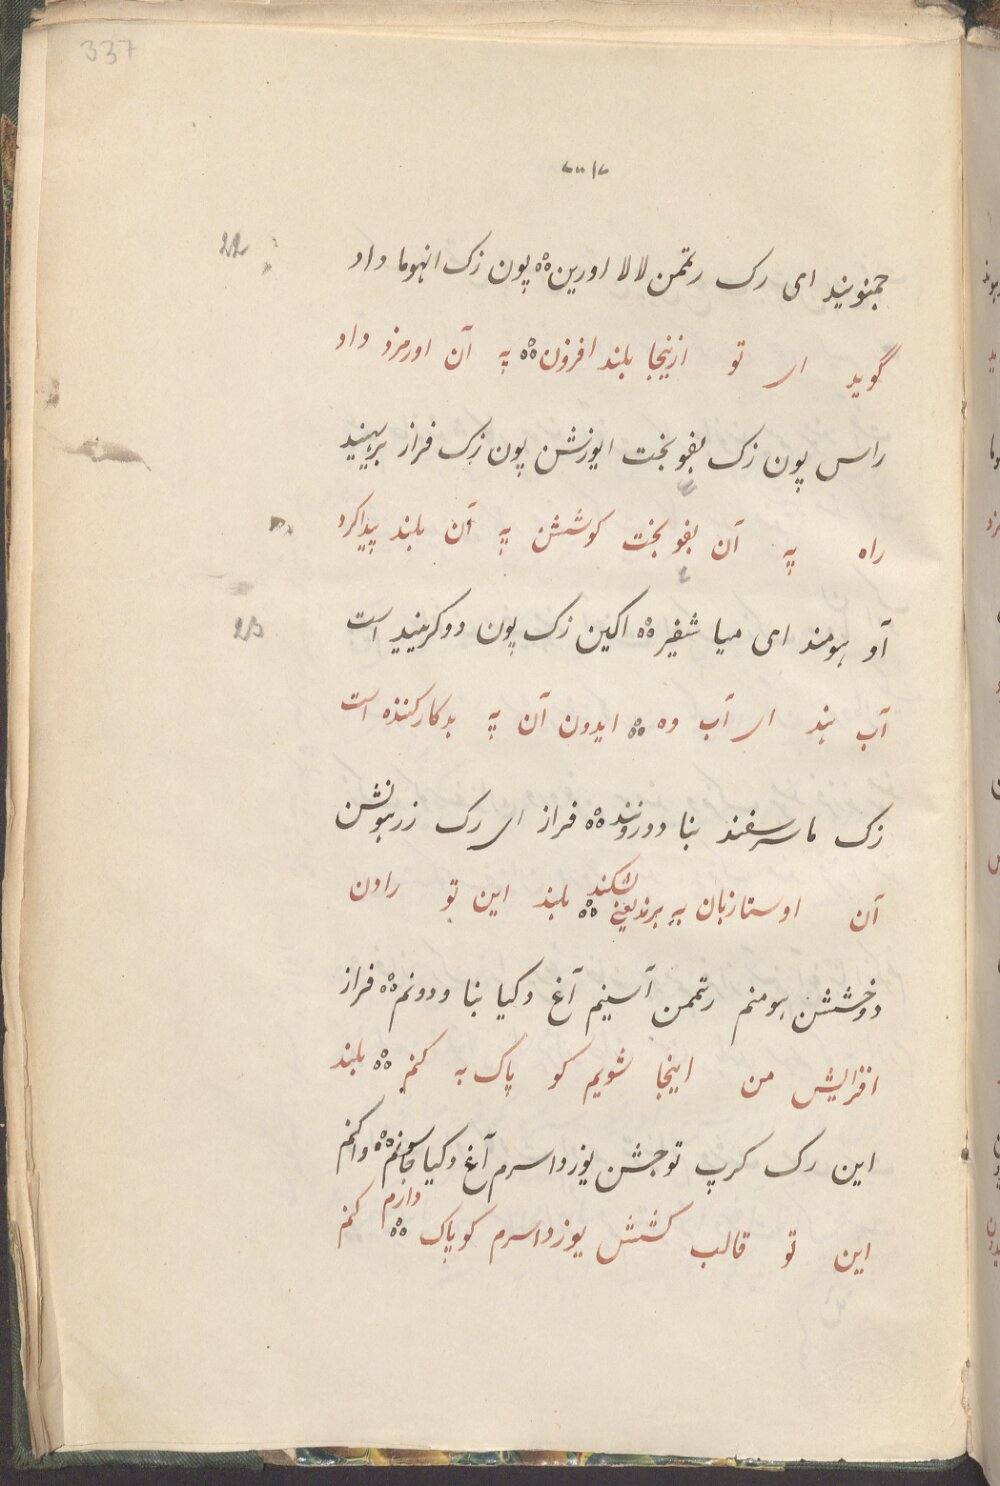 337
22
جمنونید ای رک رتمن لالا اورین ؞ پون زک انهوما داد
گوید ای تو ازینجا بلند افزون ؞ په آن اورمزد داد
راس پون زک بفوبخت ایوزشن پون زک فراز بریهینید
راه په آن بفوبخت کوشش په آن بلند پیداکرد
23
آو هومند ای میا شفیر ؞ اکین زک پون دوکرینید است
آب هند ای آب وه ؞ ایدون آن په بدکارکننده است
زک ماسرسفند بنا ددرونند ؞ فراز ای رک زرهونشن
آن اوستا زبان به برند یعنی شکند ؞ بلند این تو زادن
دوخششن هومنم رتممن آسینم آغ دکیا بنا ودونم ؞ فراز
افزایش من اینجا شویم کو پاک به کنم ؞ بلند
این رک کرپ توجشن یوزداسرم آغ دکیا ؞ واکنم
این تو قالب کشش یوزداسرم کو پاک دارم ؞ کنم